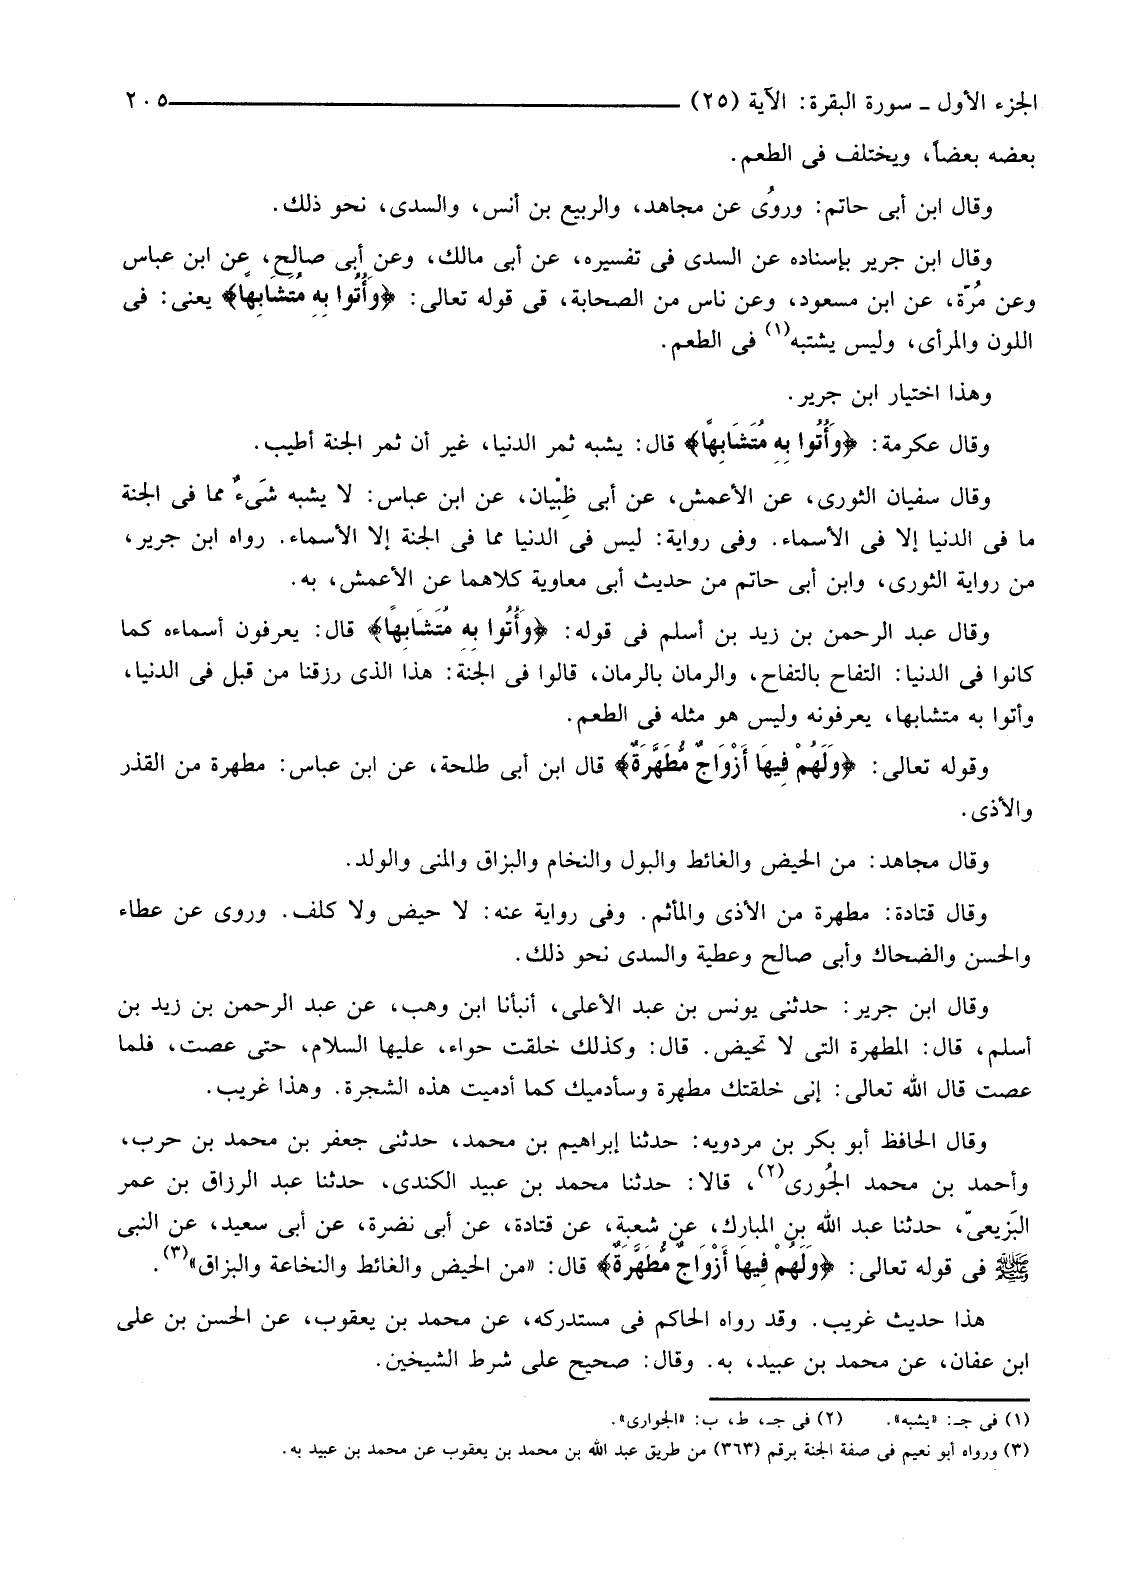 الجزء الأول ـ سورة البقرة: الآية (٢٥) ٢٠٥
بعضه بعضاً، ويختلف فى الطعم.
وقال ابن أبى حاتم: ورُوى عن مجاهد، والربيع بن أنس، والسدى، نحو ذلك.
وقال ابن جرير بإسناده عن السدى فى تفسيره، عن أبى مالك، وعن أبى صالح، عن ابن عباس
وعن مُرّة، عن ابن مسعود، وعن ناس من الصحابة، فى قوله تعالى: ﴿وَأُتُوا بِهِ مُتَشَابِهًا﴾ يعنى: فى
اللون والمرأى، وليس يشتبه(١) فى الطعم.
وهذا اختيار ابن جرير.
وقال عكرمة: ﴿وَأُتُوا بِهِ مُتَشَابِهًا﴾ قال: يشبه ثمر الدنيا، غير أن ثمر الجنة أطيب.
وقال سفيان الثورى، عن الأعمش، عن أبى ظِبْيان، عن ابن عباس: لا يشبه شَىءٌ مما فى الجنة
ما فى الدنيا إلا فى الأسماء. وفى رواية: ليس فى الدنيا مما فى الجنة إلا الأسماء. رواه ابن جرير،
من رواية الثورى، وابن أبى حاتم من حديث أبى معاوية كلاهما عن الأعمش، به.
وقال عبد الرحمن بن زيد بن أسلم فى قوله: ﴿وَأُتُوا بِهِ مُتَشَابِهًا﴾ قال: يعرفون أسماءه كما
كانوا فى الدنيا: التفاح بالتفاح، والرمان بالرمان، قالوا فى الجنة: هذا الذى رزقنا من قبل فى الدنيا،
وأتوا به متشابها، يعرفونه وليس هو مثله فى الطعم.
وقوله تعالى: ﴿وَلَهُمْ فِيهَا أَزْوَاجٌ مُّطَهَّرَةٌ﴾ قال ابن أبى طلحة، عن ابن عباس: مطهرة من القذر
والأذى.
وقال مجاهد: من الحيض والغائط والبول والنخام والبزاق والمنى والولد.
وقال قتادة: مطهرة من الأذى والمأثم. وفى رواية عنه: لا حيض ولا كلف. وروى عن عطاء
والحسن والضحاك وأبى صالح وعطية والسدى نحو ذلك.
وقال ابن جرير: حدثنى يونس بن عبد الأعلى، أنبأنا ابن وهب، عن عبد الرحمن بن زيد بن
أسلم، قال: المطهرة التى لا تحيض. قال: وكذلك خلقت حواء، عليها السلام، حتى عصت، فلما
عصت قال الله تعالى: إنى خلقتك مطهرة وسأدميك كما أدميت هذه الشجرة. وهذا غريب.
وقال الحافظ أبو بكر بن مردويه: حدثنا إبراهيم بن محمد، حدثنى جعفر بن محمد بن حرب،
وأحمد بن محمد الجُورى(٢)، قالا: حدثنا محمد بن عبيد الكندى، حدثنا عبد الرزاق بن عمر
البَزيعىّ، حدثنا عبد الله بن المبارك، عن شعبة، عن قتادة، عن أبى نضرة، عن أبى سعيد، عن النبى
ﷺ فى قوله تعالى: ﴿وَلَهُمْ فِيهَا أَزْوَاجٌ مُّطَهَّرَةٌ﴾ قال: «من الحيض والغائط والنخاعة والبزاق»(٣).
هذا حديث غريب. وقد رواه الحاكم فى مستدركه، عن محمد بن يعقوب، عن الحسن بن على
ابن عفان، عن محمد بن عبيد، به. وقال: صحيح على شرط الشيخين.
(١) فى جـ: «يشبه». (٢) فى جـ، ط، ب: «الجوارى».
(٣) ورواه أبو نعيم فى صفة الجنة برقم (٣٦٣) من طريق عبد الله بن محمد بن يعقوب عن محمد بن عبيد به.